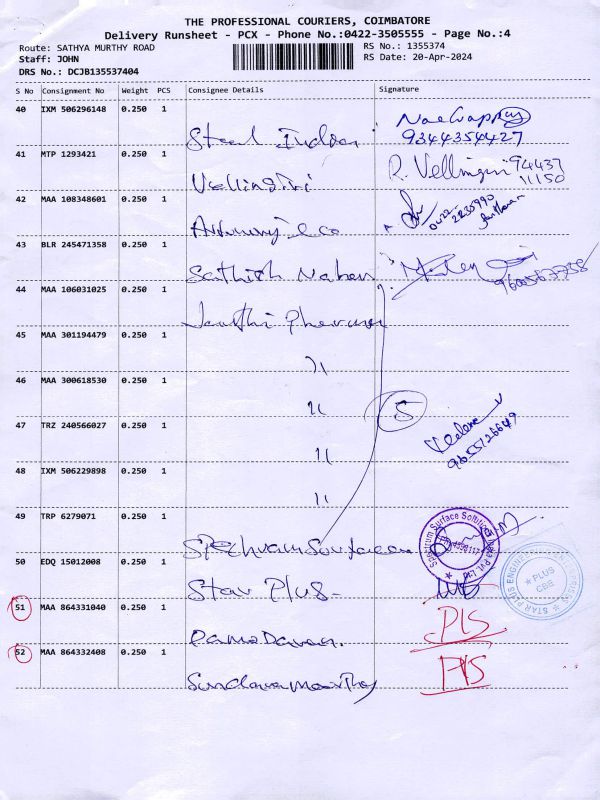 THE PROFESSIONAL COURIERS, COIMBATORE
Delivery Runsheet - PCX - Phone No.:0422-3505555 - Page No.:4
Route: SATHYA MURTHY ROAD
RS No.: 1355374
Staff: JOHN
RS Date: 20-Apr-2024
DRS No.: DCJB135537404
S No Consignment No Weight PCS Consignee Details Signature
40 IXM 506296148 0.250 1
Steel Indoor
9344354427
41 MTP 1293421 0.250 1
Vellingiri
R. Vellingiri 94437
11150
42 MAA 108348601 0.250 1
0422-
2230990
43 BLR 245471358 0.250 1
Sathish
44 MAA 106031025 0.250 1
45 MAA 301194479 0.250 1
11
46 MAA 300618530 0.250 1
11
5
47 TRZ 240566027 0.250 1
11
48 IXM 506229898 0.250 1
11
49 TRP 6279071 0.250 1
Spectrum Surface Solutions
50 EDQ 15012008 0.250 1
Star Plus-
STAR PLUS ENGINEERING
PLUS
CBE
51 MAA 864331040 0.250 1
Damodaran.
52 MAA 864332408 0.250 1
Sundaramoorthy